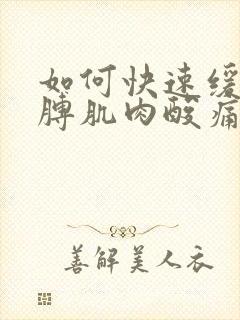 如何快速缓
膊肌肉酸痛
善解美人衣